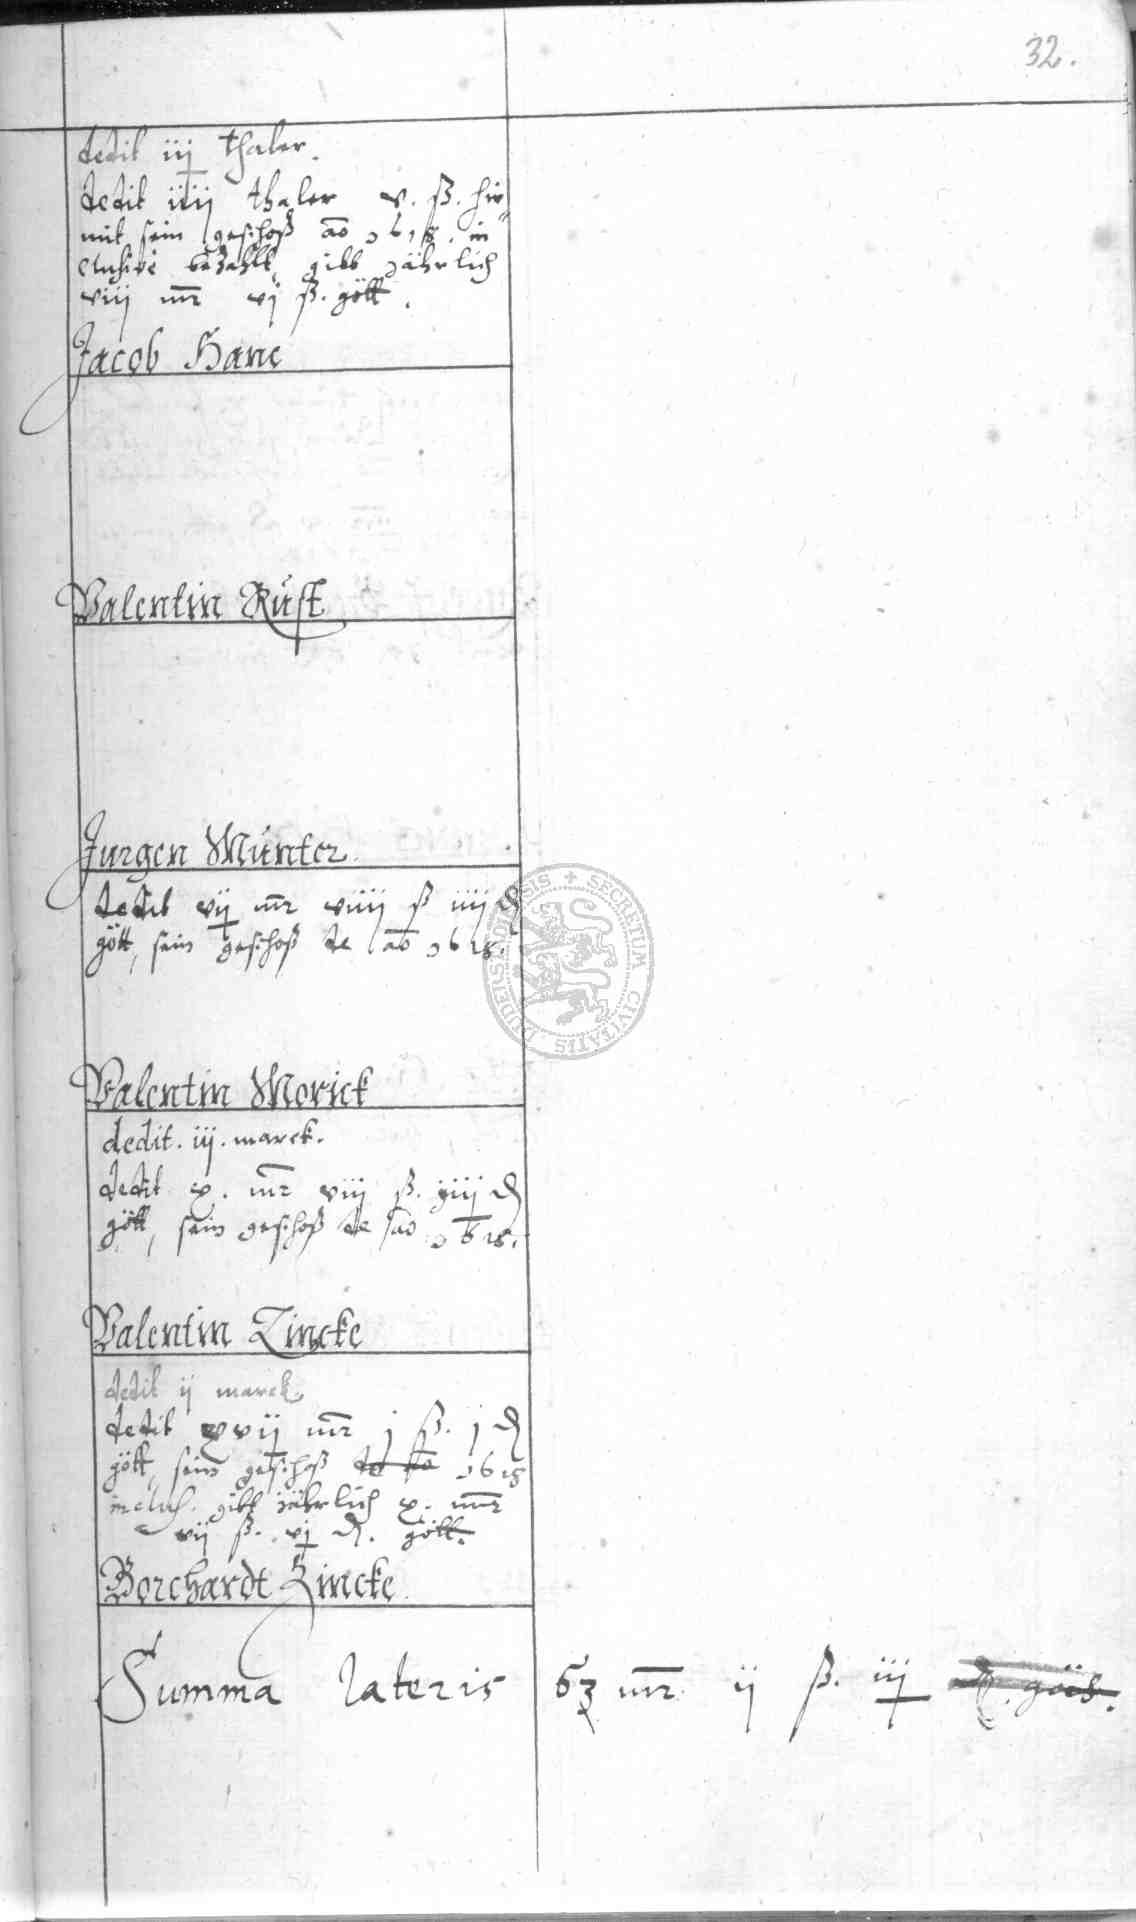 32.
dedit iij thaler.
dedit iiij thaler v. ß. hir
mit sein geschoß ao 1618. in
clusive bezahlt, gibt jährlich
viij mr vj ß. gött.
Jacob Hane
Valentin Rust
Jurgen Munter.
dedit vij mr viiij ß iiij ₰
gött, sein geschoß de ao 1618.
SECRETUM CIVITATIS DUDERSTADENSIS
Valentin Morick
dedit. iij. marck.
dedit x. mr viij ß. iiij ₰
gött, sein geschoß de ao 1618.
Valentin Zincke
dedit ij marck
dedit xvij mr j ß. j ₰
gött, sein geschoß de ao 1618
inclus. gibt jährlich x. mr
vij ß. vj ₰. gött.
Borchardt Zincke.
Summa lateris 63 mr ij ß. iij